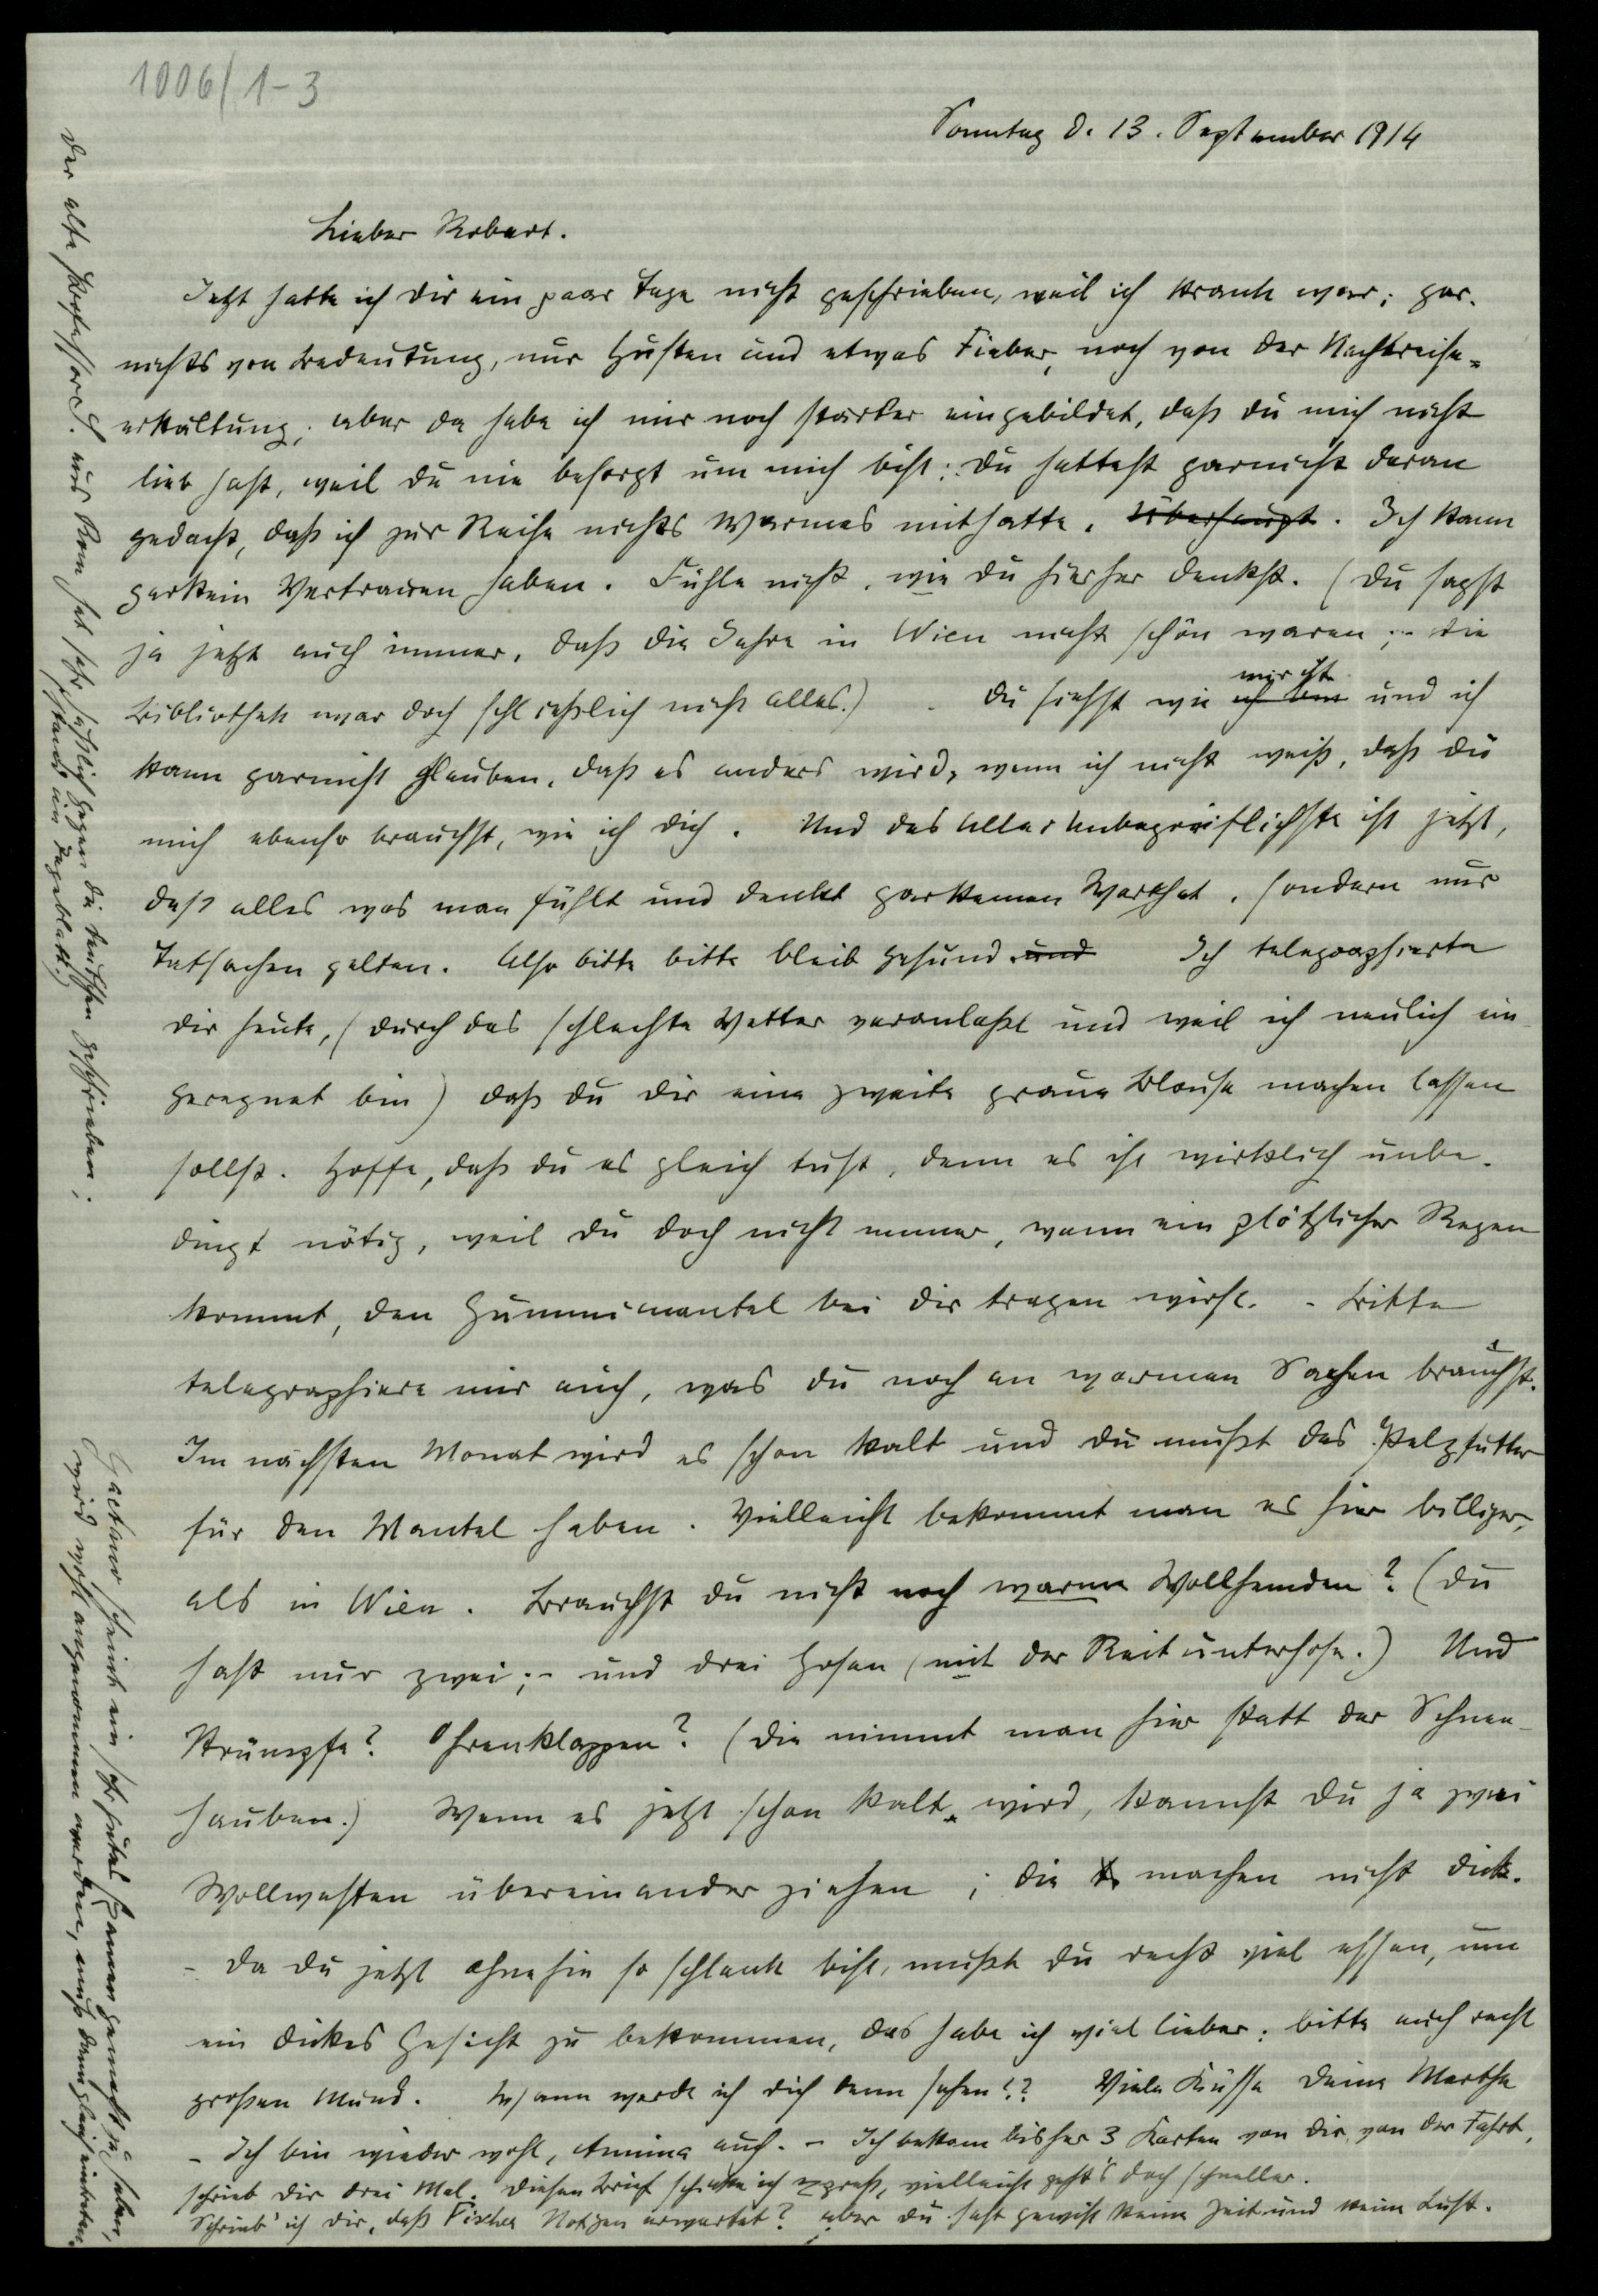 1006/1-3
Sonntag d. 13. September 1914
Lieber Robert.
Jetzt hatte ich dir ein paar Tage nicht geschrieben, weil ich krank war; gar-
nichts von Bedeutung, nur Husten und etwas Fieber, noch von der Nachtreise-
erkältung; aber da habe ich mir noch stärker eingebildet, daß du mich nicht
lieb hast, weil du nie besorgt um mich bist: du hattest garnicht daran
gedacht, daß ich zur Reise nichts Warmes mithatte. Überhaupt. Ich kann
garkein Vertrauen haben. Fühle nicht, wie du hierher denkst. (Du sagst
ja jetzt auch immer, daß die Jahre in Wien nicht schön waren; - die
Bibliothek war doch schließlich nicht alles.) - Du siehst wie ich bin mir ist und ich
kann garnicht glauben, daß es anders wird, wenn ich nicht weiß, daß du
mich ebenso brauchst, wie ich dich. Und das Allerunbegreiflichste ist jetzt,
daß alles was man fühlt und denkt garkeinen Wert hat, sondern nur
Tatsachen gelten. Also bitte bitte bleib gesund. und Ich telegraphierte
dir heute, (durch das schlechte Wetter veranlaßt und weil ich neulich ein-
geregnet bin) daß du dir eine zweite graue Blouse machen lassen
sollst. Hoffe, daß du es gleich tust, denn es ist wirklich unbe-
dingt nötig, weil du doch nicht immer, wenn ein plötzlicher Regen
kommt, den Gummimantel bei dir tragen wirst. - Bitte
telegraphiere mir auch, was du noch an warmen Sachen brauchst.
Im nächsten Monat wird es schon kalt und du mußt das Pelzfutter
für den Mantel haben. Vielleicht bekommt man es hier billiger,
als in Wien. Brauchst du nicht noch warme Wollhemden? (Du
hast nur zwei; - und drei Hosen (mit der Reitunterhose.) Und
Strümpfe? Ohrenklappen? (Die nimmt man hier statt der Schnee-
hauben.) Wenn es jetzt schon kalt wird, kannst du ja zwei
Wollwesten übereinander ziehen; die machen nicht dick.
- Da du jetzt ohnehin so schlank bist, mußt du recht viel essen, um
ein dickes Gesicht zu bekommen, das habe ich viel lieber; bitte auch recht
großen Mund. Wann werde ich dich denn sehen?? Viele Küsse Deine Martha
- Ich bin wieder wohl, Annina auch. - Ich bekam bisher 3 Karten von dir von der Fahrt,
schrieb dir drei Mal. Diesen Brief schicke ich expreß, vielleicht geht's doch schneller.
Schrieb' ich dir, daß Fischer Notizen erwartet? aber du hast gewiß keine Zeit und keine Lust.
Gaetano scheint ein sehr gutes Examen gemacht zu haben,
wird wohl angenommen werden, muß dann gleich eintreten.
Der alte Professore S. aus Rom hat sehr häßlich gegen die Deutschen geschrieben;
(stand im Tageblatt.)